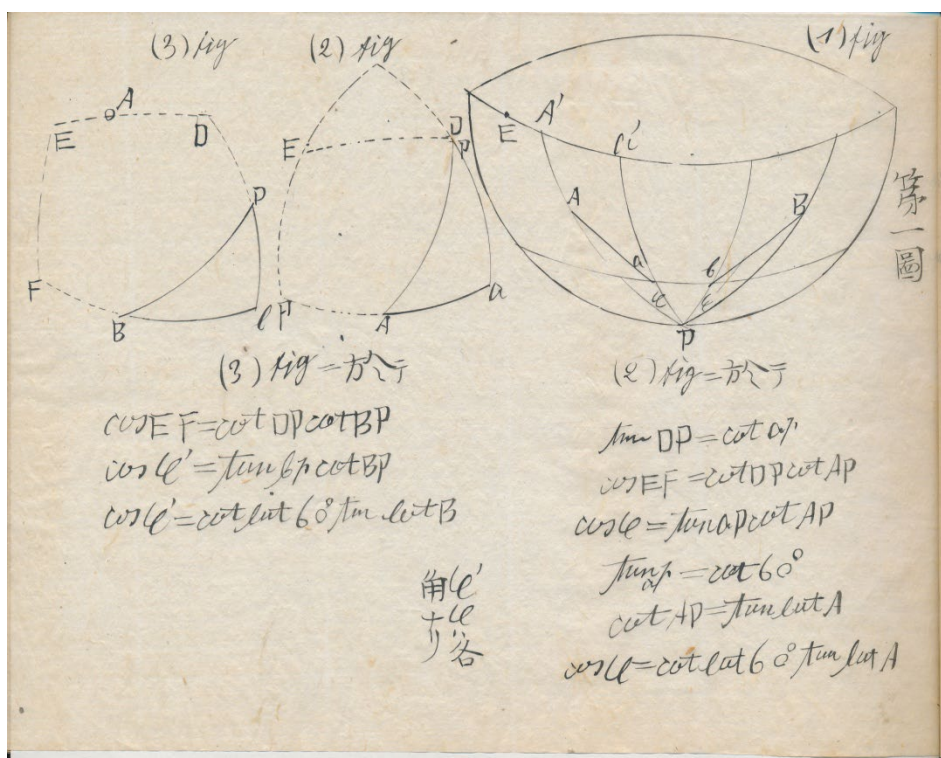 (3) fig
(2) fig
(1) fig
第一圖
A
E
D
P
F
B
C
D
P
E
F
A
a
E
A'
C'
A
B
a
b
φ
φ'
P
(3) fig = 於テ
cos EF = cot DP cot BP
cos φ' = tan bp cot BP
cos φ' = cot lat 60° tan lat B
(2) fig = 於テ
tan DP = cot ap
cos EF = cot DP cot AP
cos φ = tan ap cot AP
tan ap = cot 60°
cot AP = tan lat A
cos φ = cot lat 60° tan lat A
角φ'
ナφ
リ各